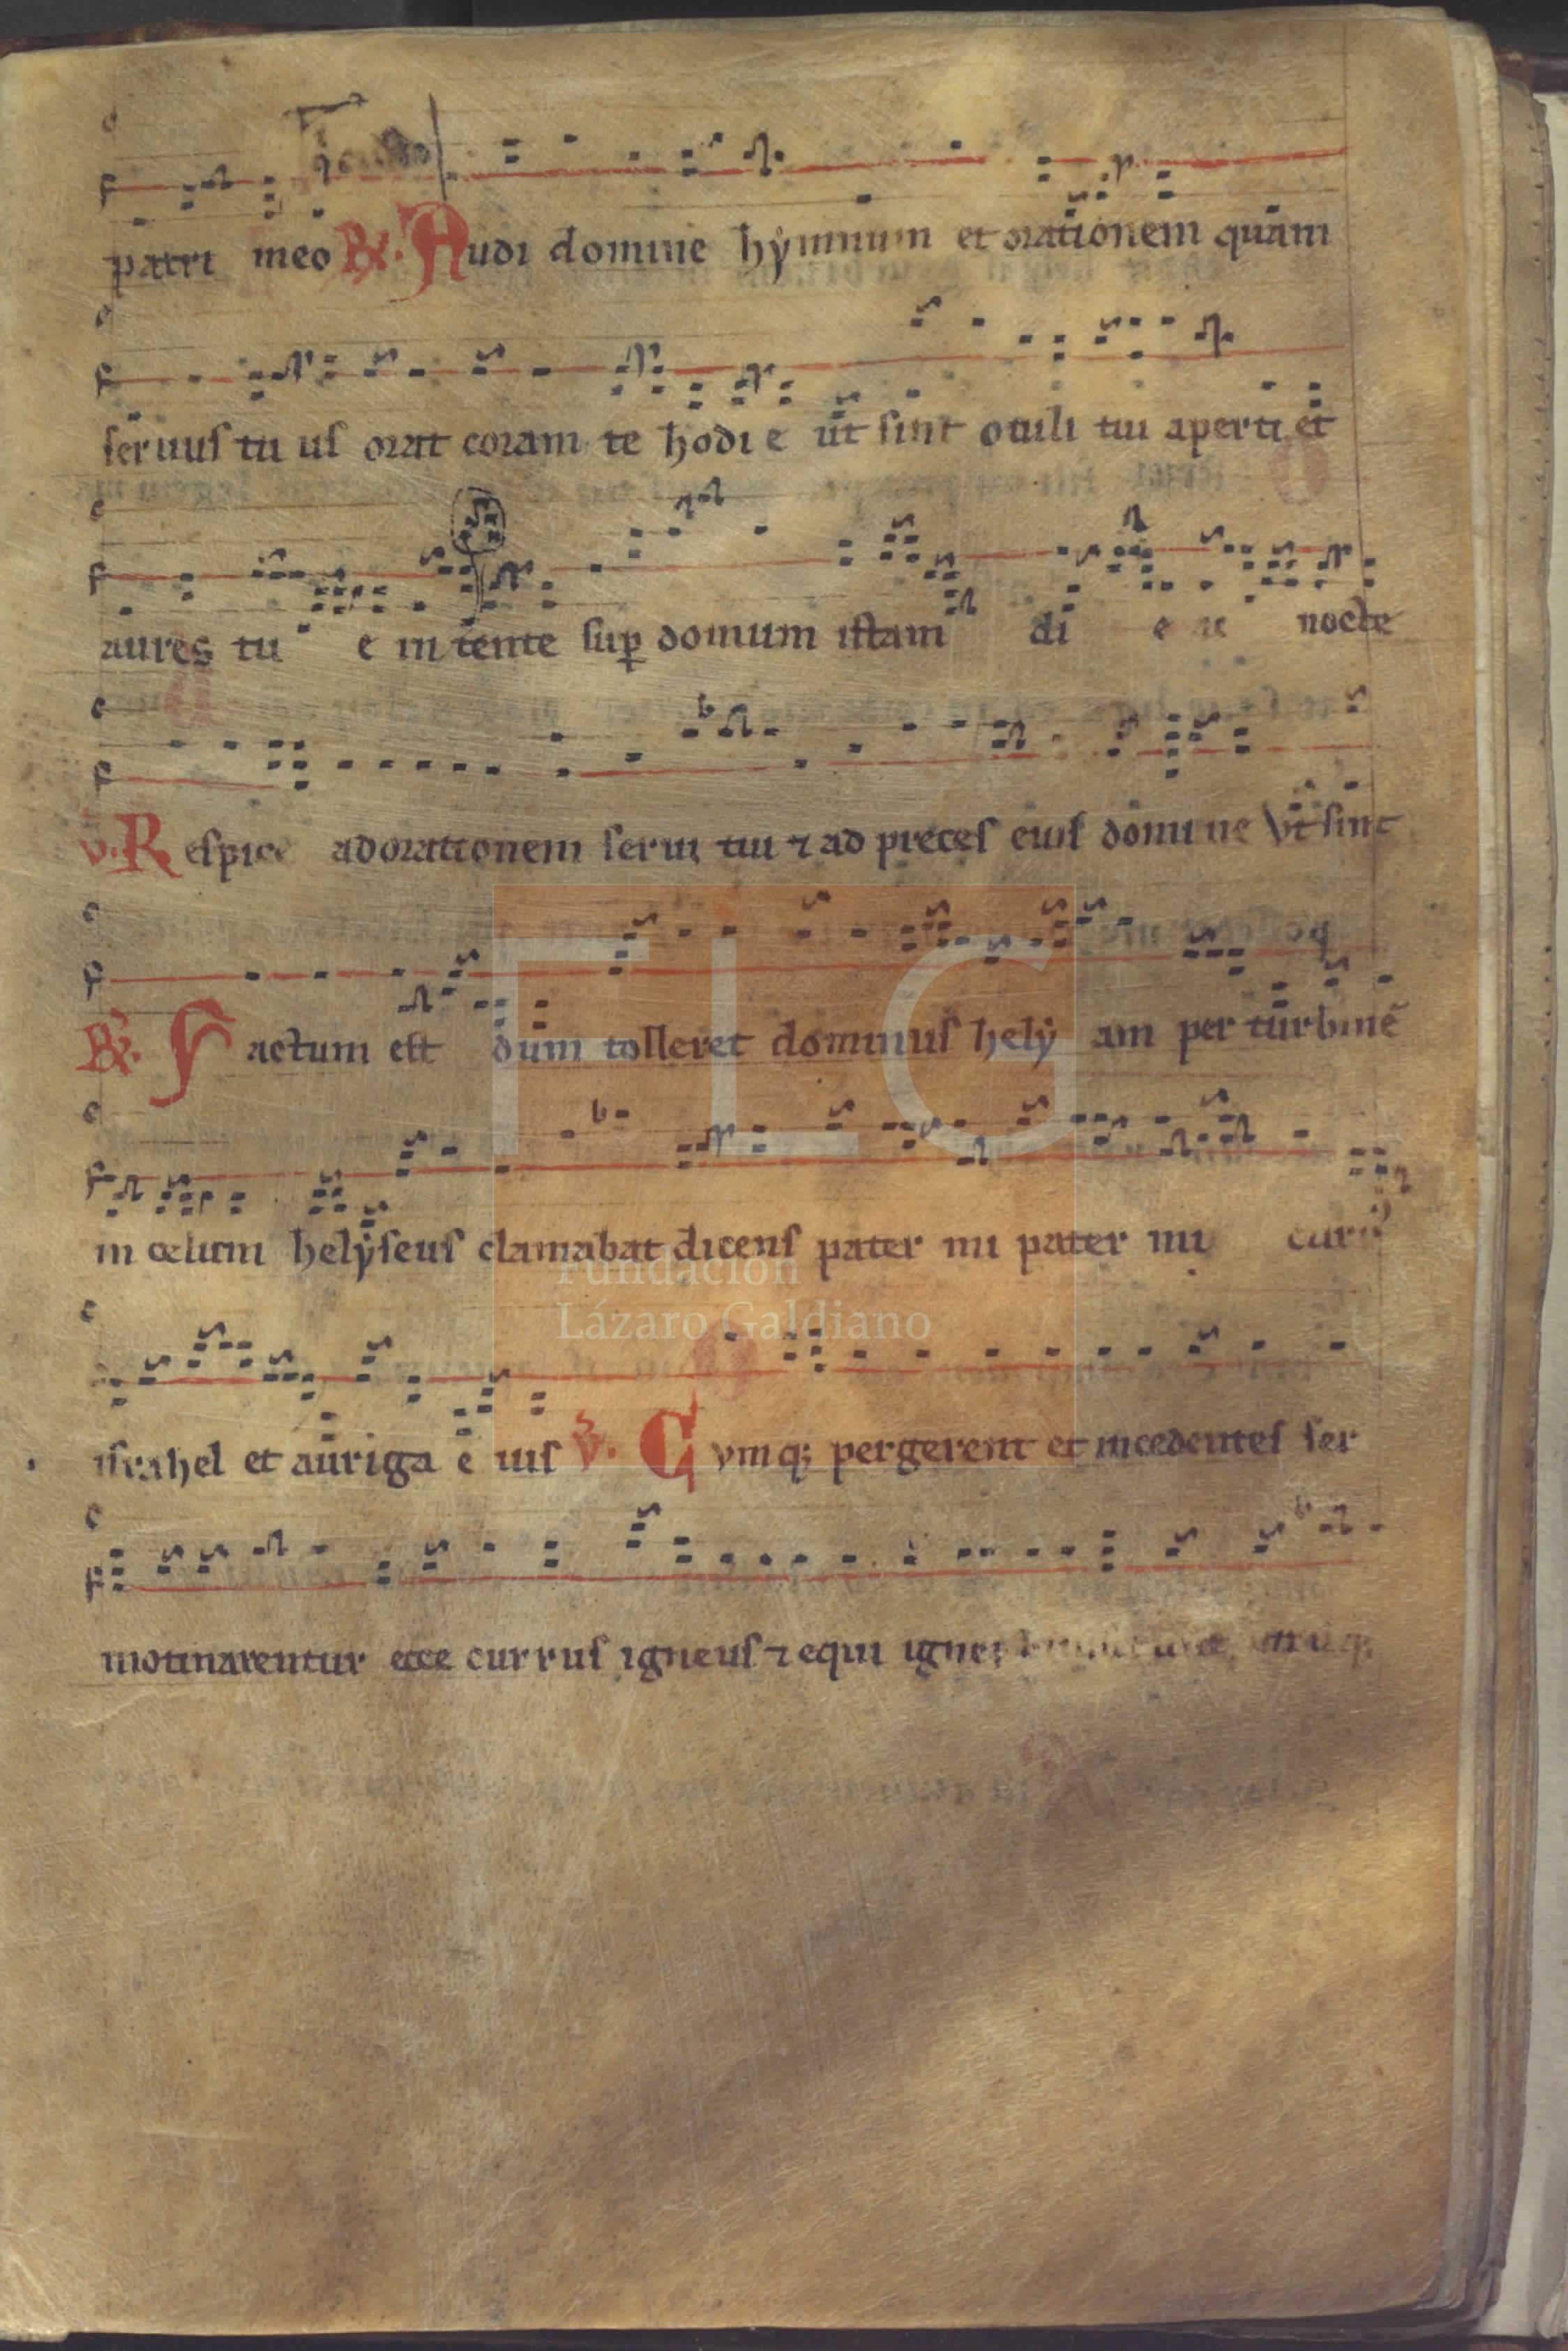 patri meo R. Audi domine hẏmnum et orationem quam
seruus tu us orat coram te hodi e ut sint oculi tui aperti et
aures tu e in tente sup domum istam di e ac nocte
v. Respice ad orationem serui tui ⁊ ad preces eius domine Vt sint
R. Factum est dum tolleret dominus helẏ am per turbinē
in celum helẏseus clamabat dicens pater mi pater mi curr
israhel et auriga e ius v. Cvmq; pergerent et incedentes ser
mocinarentur ecce currus igneus ⁊ equi ignei
FLG
Fundación
Lázaro Galdiano